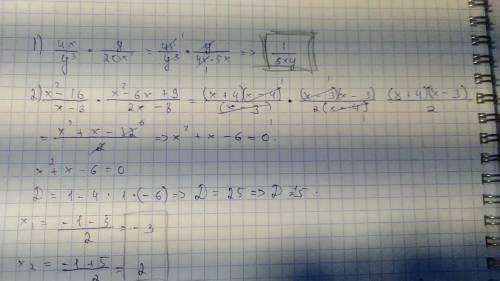 1) 4x/y³ · y/20x² = 4x/y³ · y/4x·5x => 1/5xy
2) x²-16/x-3 · x²-6x+9/2x-8 = (x+4)(x-4)/(x-3) · (x-3)(x-3)/2(x-4) (x+4)(x-3)/2
= x²+x-12/2 => x²+x-6=0
x²+x-6=0
D=1-4·1·(-6)=> D=25 => D=±5
x₁ = -1-5/2 = -3
x₂ = -1+5/2 = 2